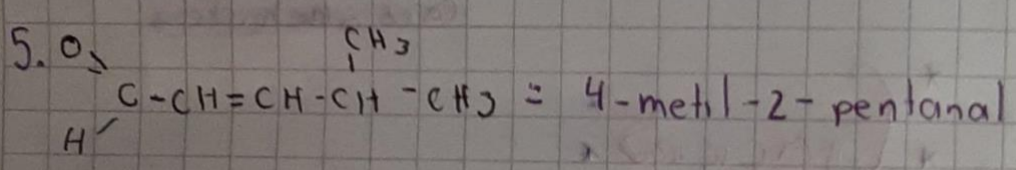 5. O CH3
C-CH=CH-CH-CH3 = 4-metil-2-pentanal
H